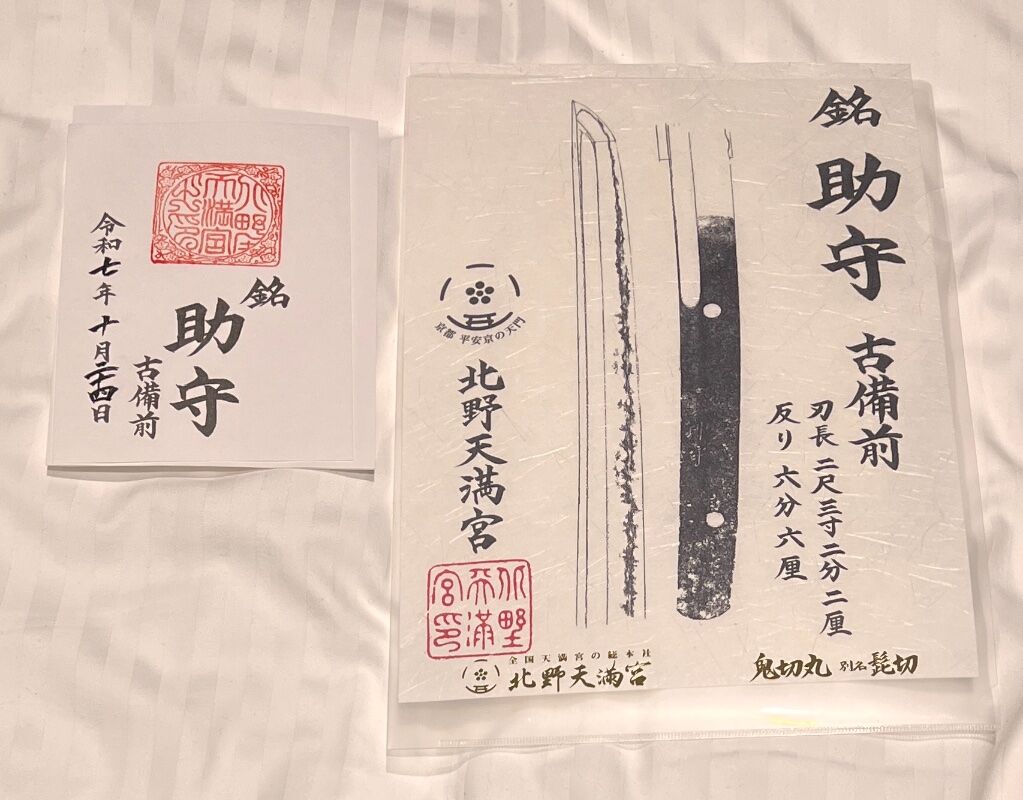 銘
助守
古備前
令和七年十月二十四日
銘
助守
古備前
刃長 二尺三寸二分二厘
反り 六分六厘
京都 平安京の天門
北野天満宮
全国天満宮の総本社
北野天満宮
鬼切丸 別名 髭切